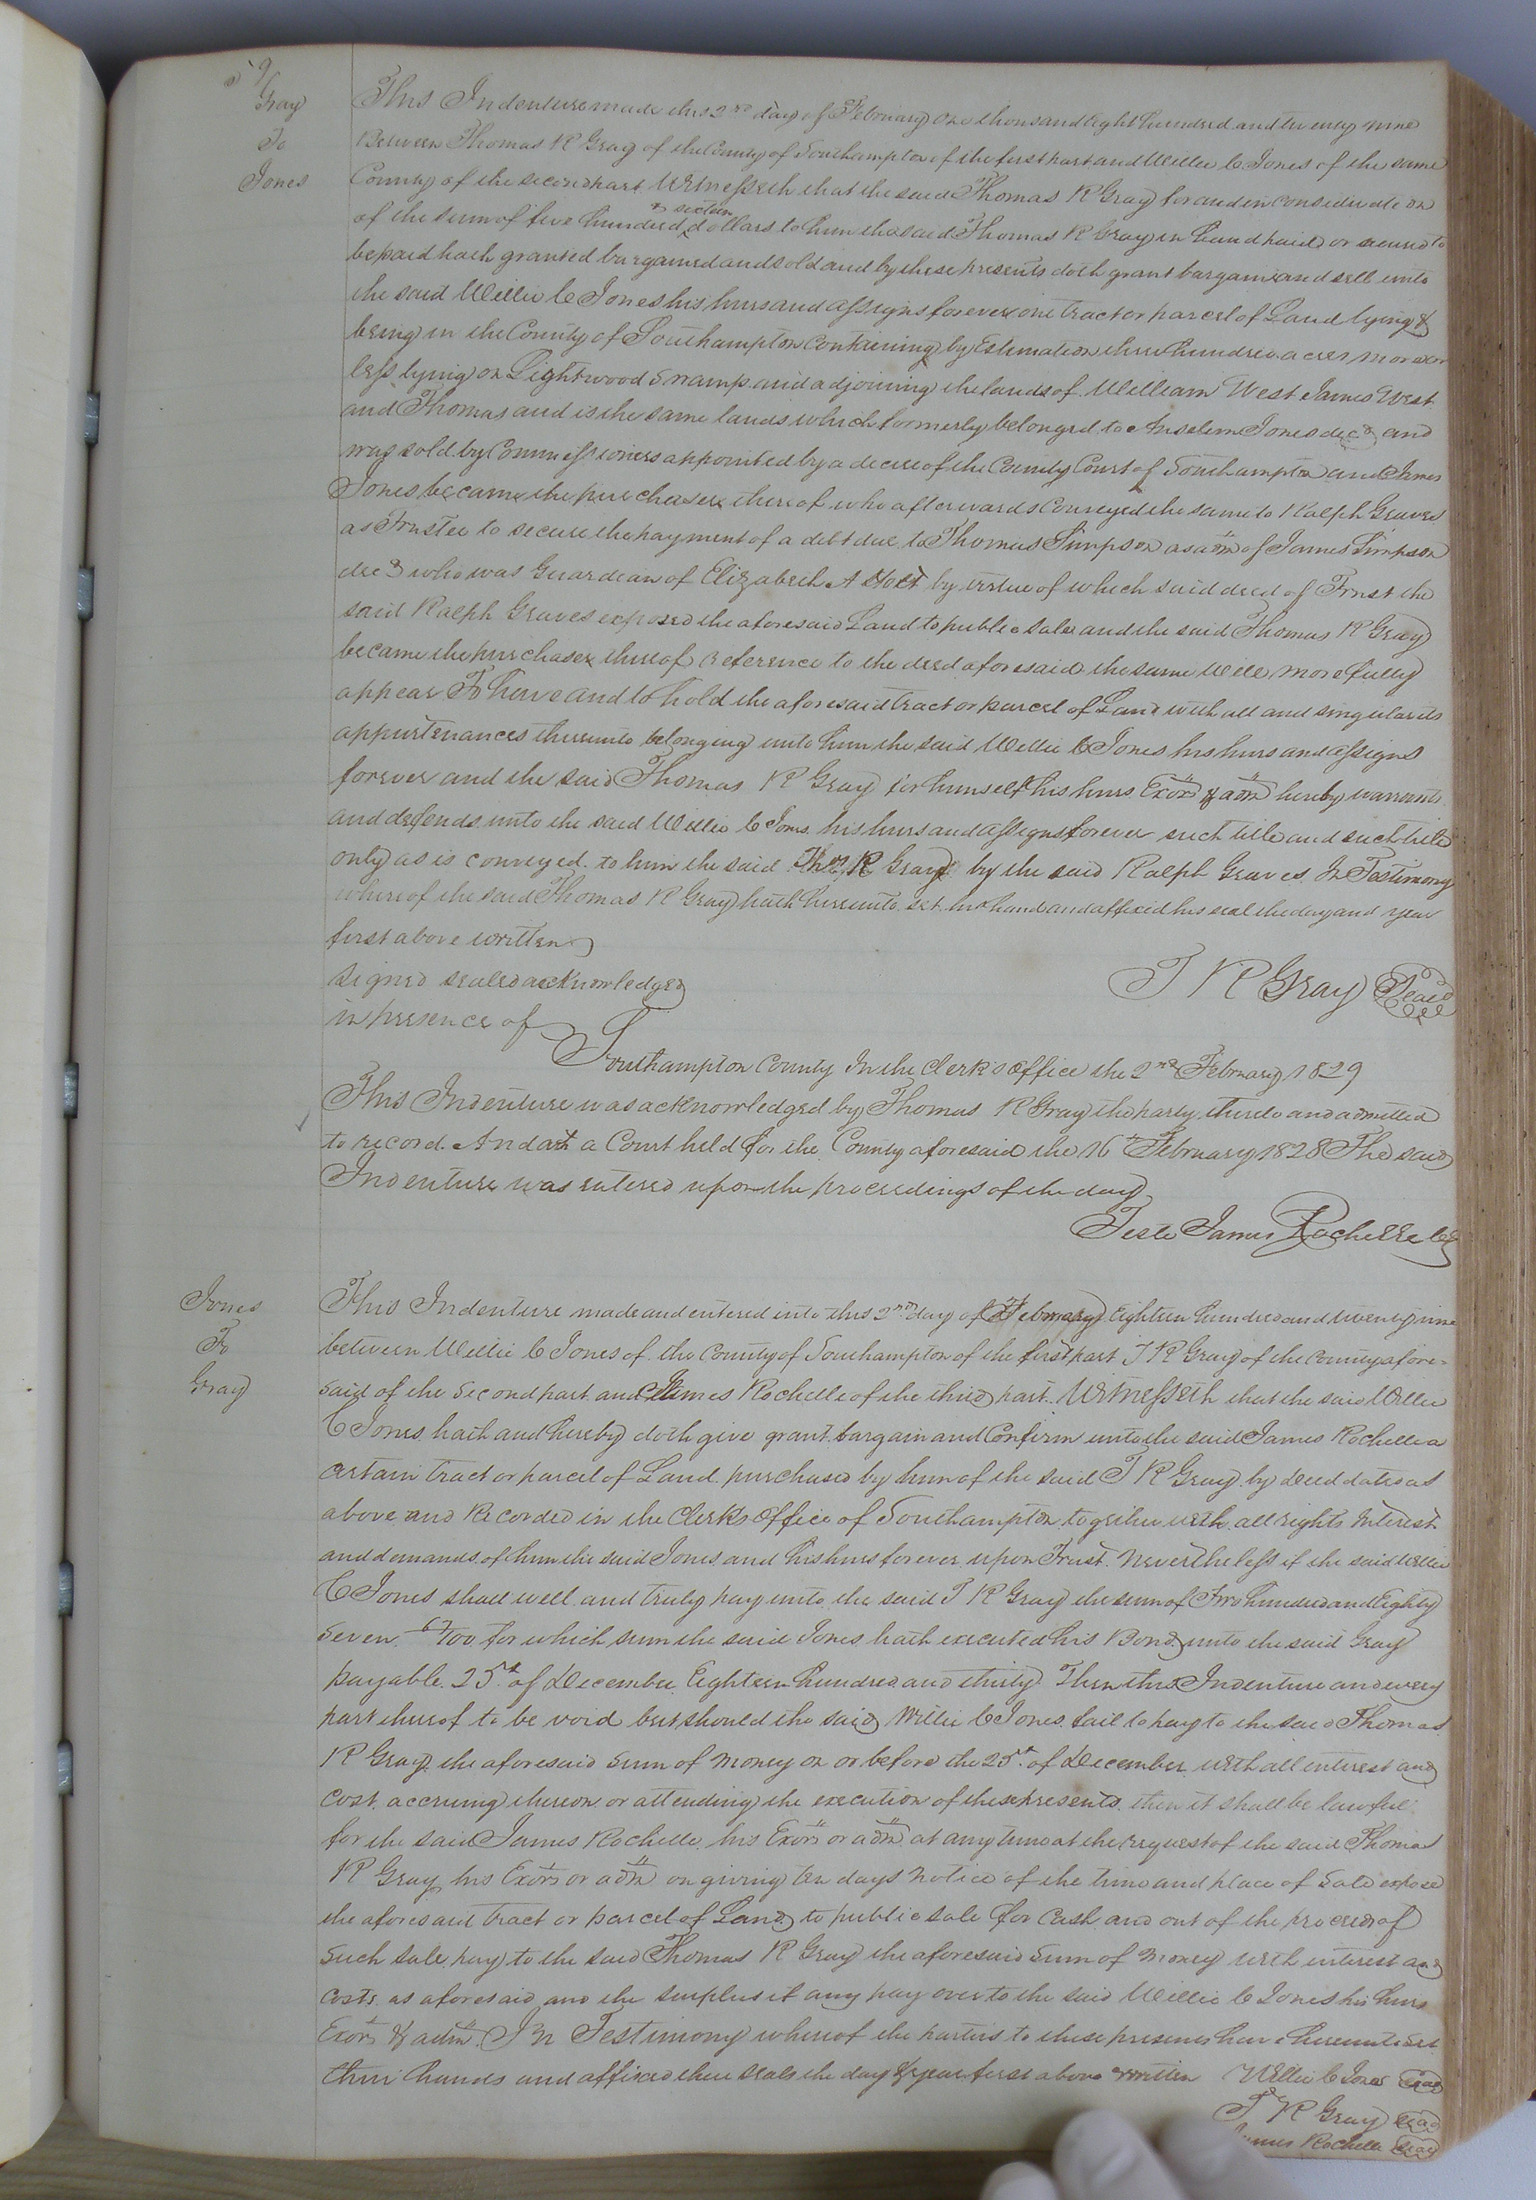 59
Gray
To
Jones
This Indenture made this 2nd day of February One thousand Eight hundred and twenty nine
Between Thomas R Gray of the County of Southampton of the first part and Willie C Jones of the same
County of the second part Witnesseth that the said Thomas R Gray for and in consideration
of the sum of five hundred & sixteen dollars to him the said Thomas R Gray in hand paid or secured to
be paid hath granted bargained and sold and by these presents doth grant bargain and sell unto
the said Willie C Jones his heirs and assigns forever one tract or parcel of Land lying &
being in the County of Southampton Containing by Estimation three hundred acres more or
less lying on Lightwood Swamp and adjoining the lands of William West James West
and Thomas and is the same lands which formerly belonged to Anselem Jones decd and
was sold by Commissioners appointed by a decree of the County Court of Southampton and James
Jones became the purchaser thereof who afterwards Conveyed the same to Ralph Graves
as Trustee to secure the payment of a debt due to Thomas Simpson as adm of James Simpson
decd who was Guardian of Elizabeth A Holt by virtue of which said deed of Trust the
said Ralph Graves exposed the aforesaid Land to public sale and the said Thomas R Gray
became the purchaser thereof reference to the deed aforesaid the same Will more fully
appear To have and to hold the aforesaid tract or parcel of Land with all and singular its
appurtenances thereunto belonging unto him the said Willie C Jones his heirs and assigns
forever and the said Thomas R Gray for himself his heirs Exors & adm hereby warrants
and defends unto the said Willie C Jones his heirs and assigns forever such title and such title
only as is conveyed to him the said Thos R Gray by the said Ralph Graves In Testimony
whereof the said Thomas R Gray hath hereunto set his hand and affixed his seal the day and year
first above written
Signed sealed acknowledged T R Gray Seal
in presence of
Southampton County In the Clerks Office the 2nd February 1829
This Indenture was acknowledged by Thomas R Gray the party thereto and admitted
to record. And at a Court held for the County aforesaid the 16th February 1828 The said
Indenture was entered upon the proceedings of the day
Teste James Rochelle
Jones
To
Gray
This Indenture made and entered into this 2nd day of February Eighteen hundred and twenty nine
between Willie C Jones of the County of Southampton of the first part T R Gray of the County afore-
said of the Second part and James Rochelle of the third part Witnesseth that the said Willie
C Jones hath and hereby doth give grant bargain and Confirm unto the said James Rochelle a
certain tract or parcel of Land purchased by him of the said T R Gray by deed dated as
above and Recorded in the Clerks Office of Southampton together with all rights Interest
and demands of him the said Jones and his heirs forever upon Trust Nevertheless if the said Willie
C Jones shall well and truly pay unto the said T R Gray the sum of Two hundred and Eighty
Seven 67/100 for which sum the said Jones hath executed his Bond unto the said Gray
payable 25th of December Eighteen hundred and thirty Then this Indenture and every
part thereof to be void but should the said Willie C Jones fail to pay to the said Thomas
R Gray the aforesaid Sum of Money on or before the 25th of December with all interest and
Cost accruing thereon or attending the execution of these presents then it shall be lawful
for the said James Rochelle his Exors or adm at any time at the request of the said Thomas
R Gray his Exors or adm on giving ten days Notice of the time and place of Sale expose
the aforesaid tract or parcel of Land to public sale for Cash and out of the proceeds of
Such sale pay to the said Thomas R Gray the aforesaid Sum of Money with interest and
Costs as aforesaid and the surplus if any pay over to the said Willie C Jones his heirs
Exors & adm In Testimony whereof the parties to these presents have hereunto set
their hands and affixed their seals the day & year first above written Willie C Jones Seal
T R Gray Seal
James Rochelle Seal